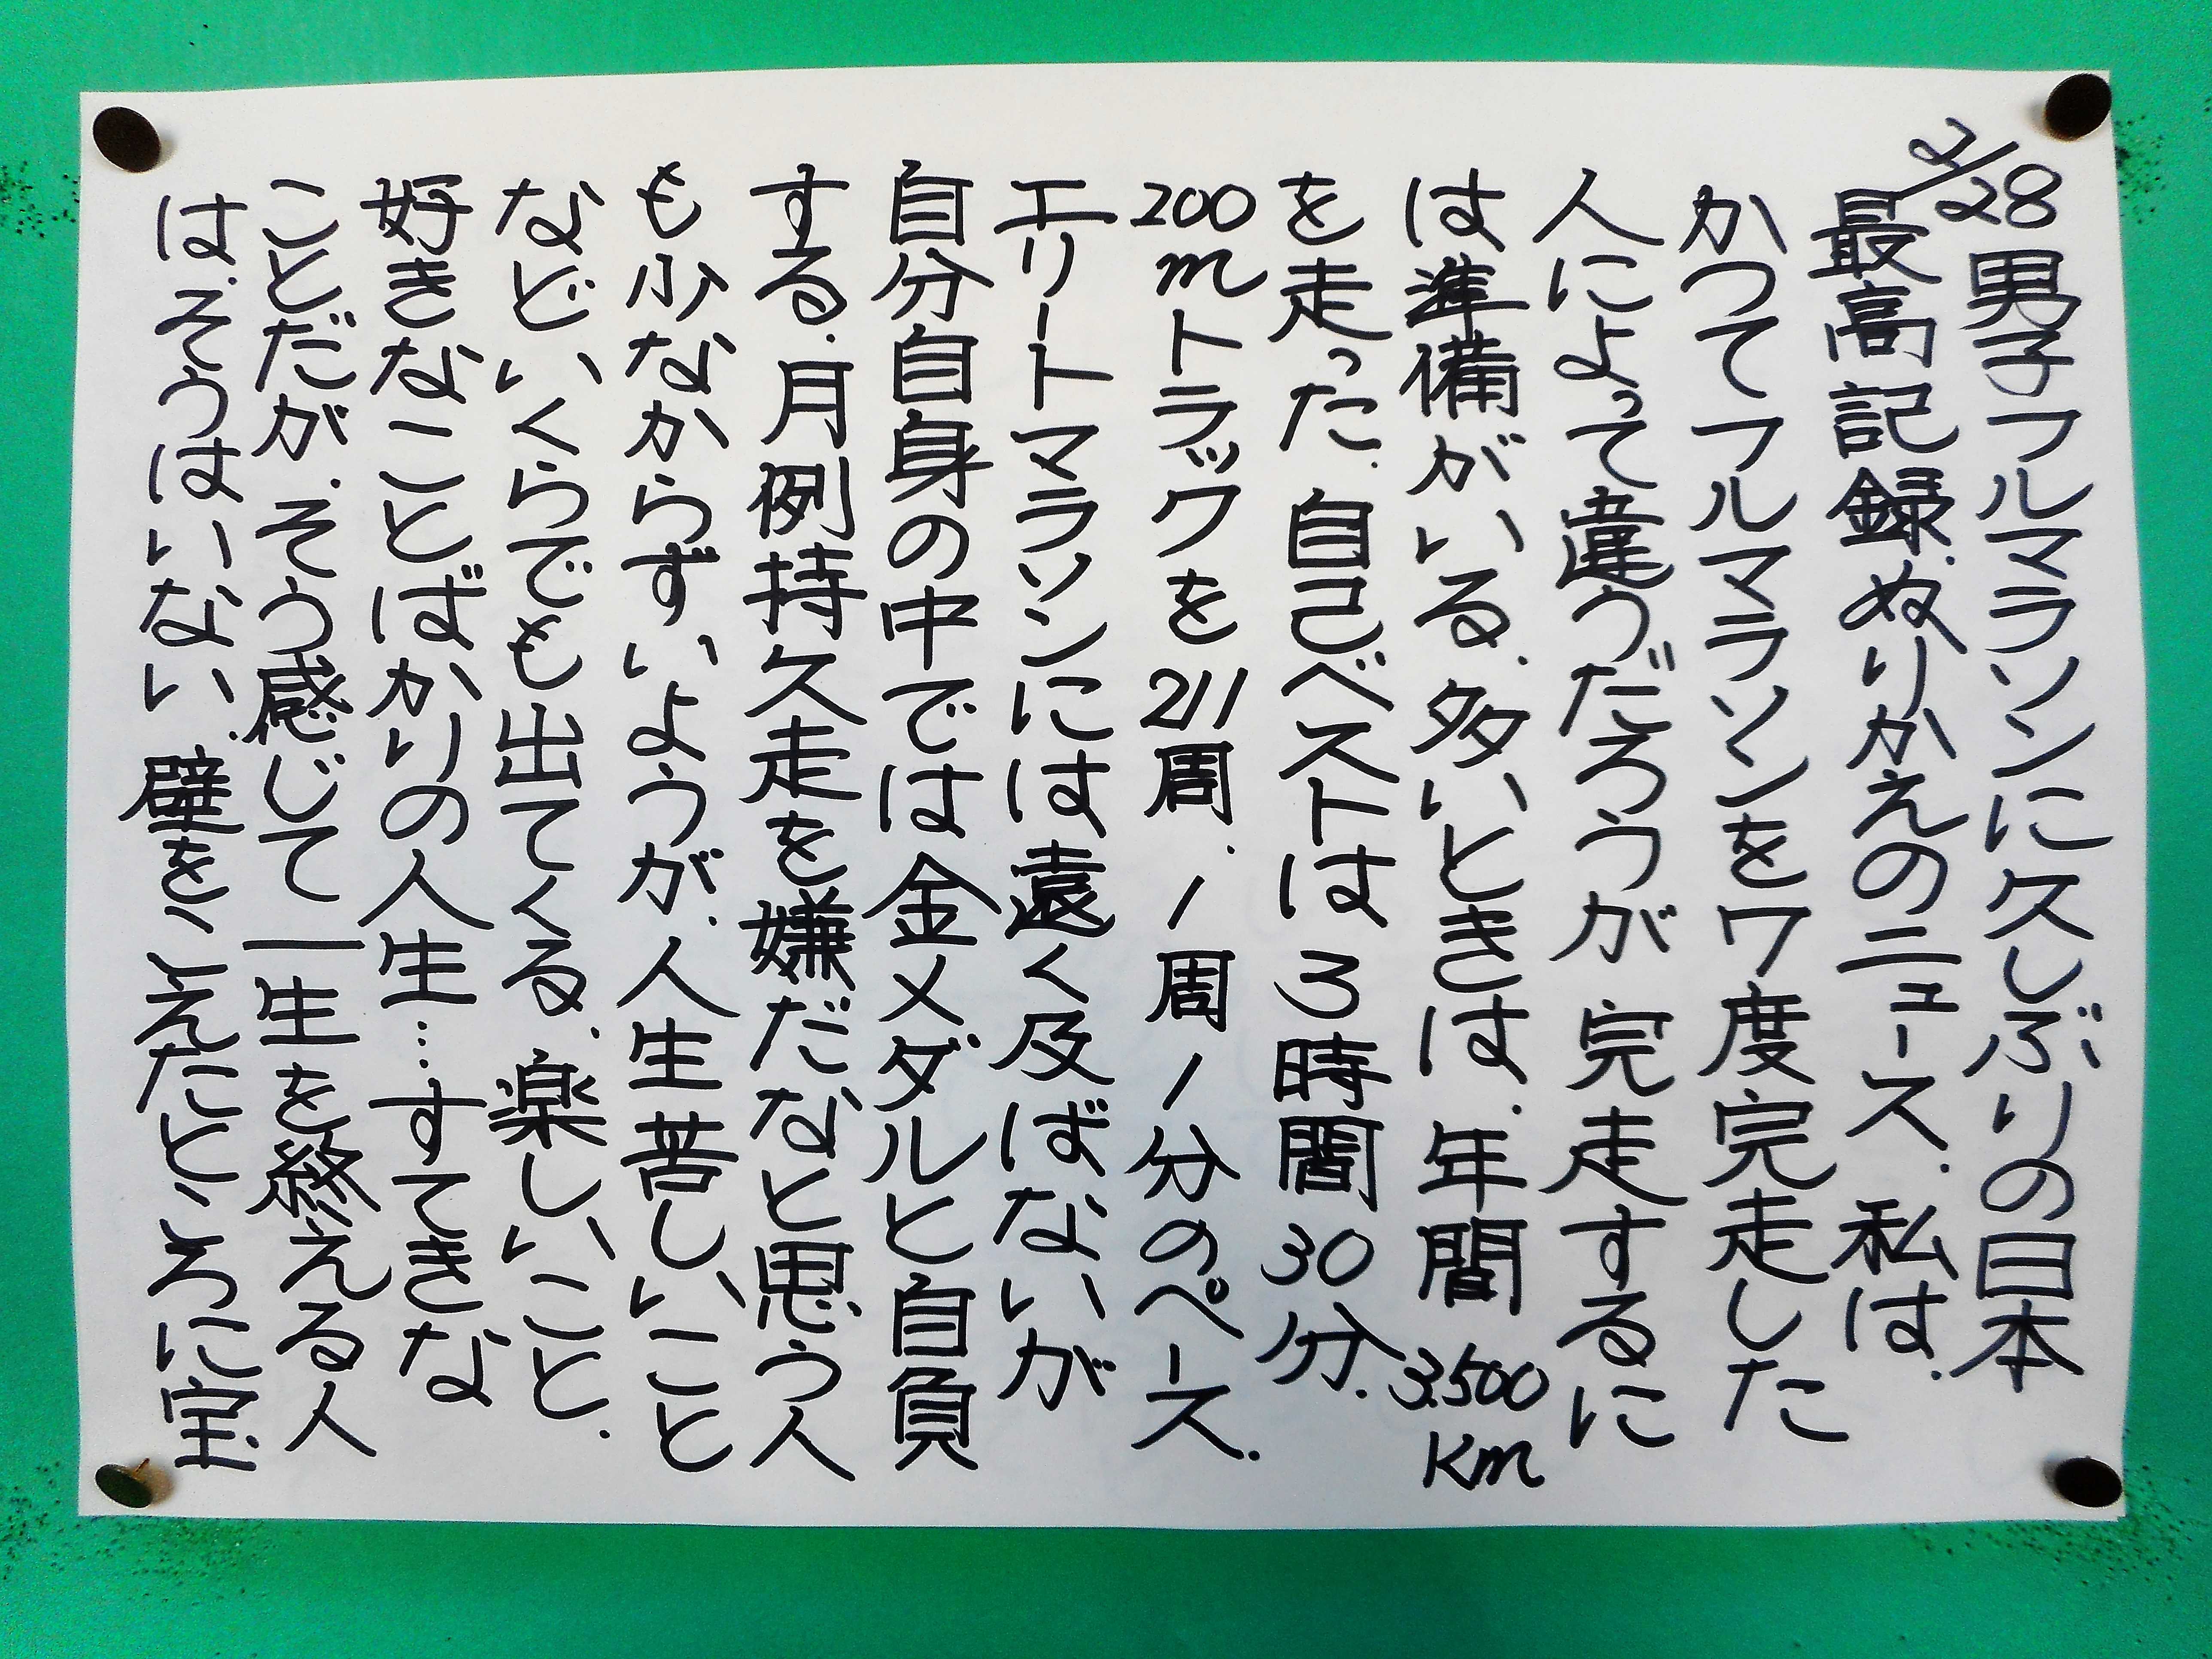 2/28
男子フルマラソンに久しぶりの日本
最高記録.ぬりかえのニュース.私は.
かつてフルマラソンを7度完走した
人によって違うだろうが完走するに
は準備がいる.多いときは.年間3.500Km
を走った.自己ベストは3時間30分.
200mトラックを211周.1周1分のペース.
エリートマラソンには遠く及ばないが
自分自身の中では金メダルと自負
する.月例持久走を嫌だなと思う人
も少なからずいようが.人生苦しいこと
などいくらでも出てくる.楽しいこと.
好きなことばかりの人生…すてきな
ことだが.そう感じて一生を終える人
は.そうはいない.壁をこえたところに宝